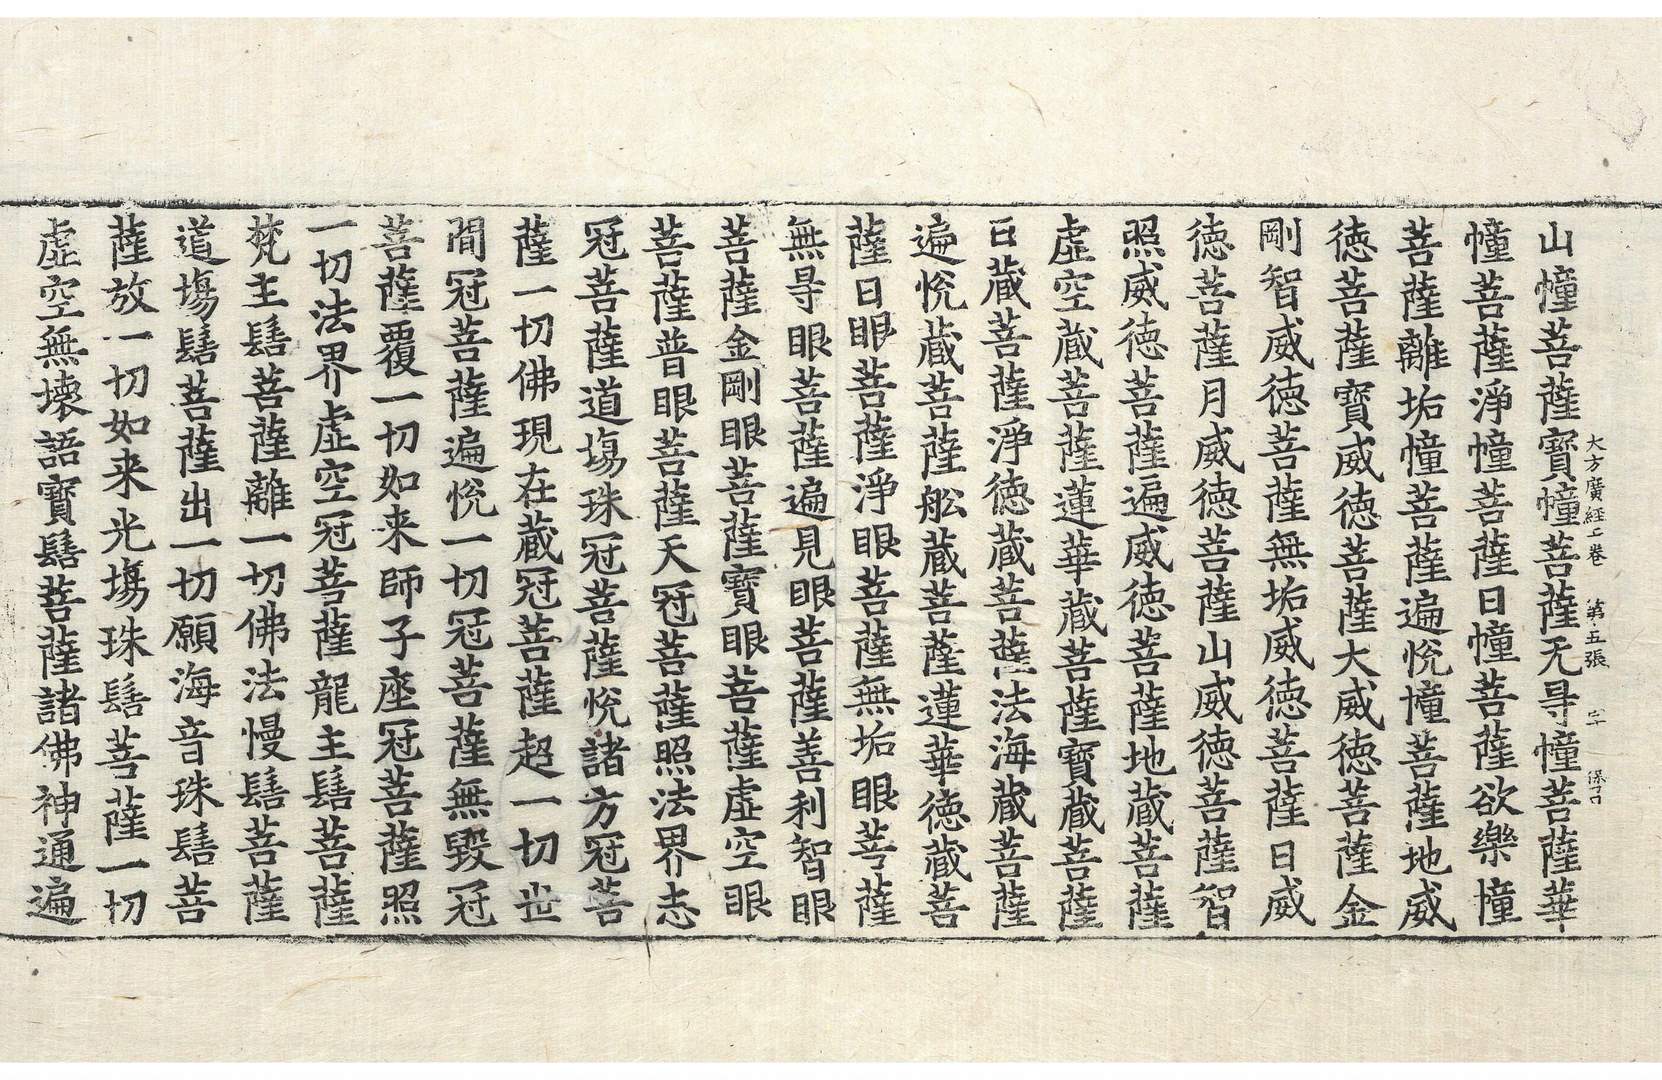 山幢菩薩寶幢菩薩无㝵幢菩薩華
大方廣經二卷 第五張 字 保
幢菩薩淨幢菩薩日幢菩薩欲樂幢
菩薩離垢幢菩薩遍悅幢菩薩地威
徳菩薩寶威徳菩薩大威徳菩薩金
剛智威徳菩薩無垢威徳菩薩日威
徳菩薩月威徳菩薩山威徳菩薩智
照威徳菩薩遍威徳菩薩地蔵菩薩
虛空蔵菩薩蓮華蔵菩薩寶蔵菩薩
日蔵菩薩淨徳蔵菩薩法海蔵菩薩
遍悅蔵菩薩舩蔵菩薩蓮華徳蔵菩
薩日眼菩薩淨眼菩薩無垢眼菩薩
無㝵眼菩薩遍見眼菩薩善利智眼
菩薩金剛眼菩薩寶眼菩薩虛空眼
菩薩普眼菩薩天冠菩薩照法界志
冠菩薩道場珠冠菩薩悅諸方冠菩
薩一切佛現在蔵冠菩薩超一切世
間冠菩薩遍悅一切冠菩薩無毀冠
菩薩覆一切如来師子座冠菩薩照
一切法界虛空冠菩薩龍主髻菩薩
梵主髻菩薩離一切佛法慢髻菩薩
道場髻菩薩出一切願海音珠髻菩
薩放一切如来光場珠髻菩薩一切
虛空無壊語寶髻菩薩諸佛神通遍